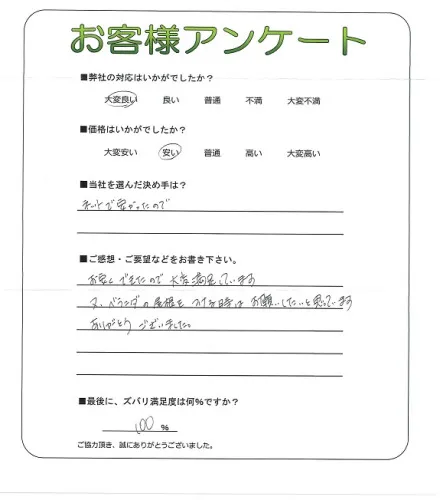 お客様アンケート
■弊社の対応はいかがでしたか？
大変良い 良い 普通 不満 大変不満
■価格はいかがでしたか？
大変安い 安い 普通 高い 大変高い
■当社を選んだ決め手は？
ネットで安かったので
■ご感想・ご要望などをお書き下さい。
お安くできたので大変満足しています
又、ベランダの屋根をつける時はお願いしたいと思っています
ありがとうございました。
■最後に、ズバリ満足度は何%ですか？
100 %
ご協力頂き、誠にありがとうございました。